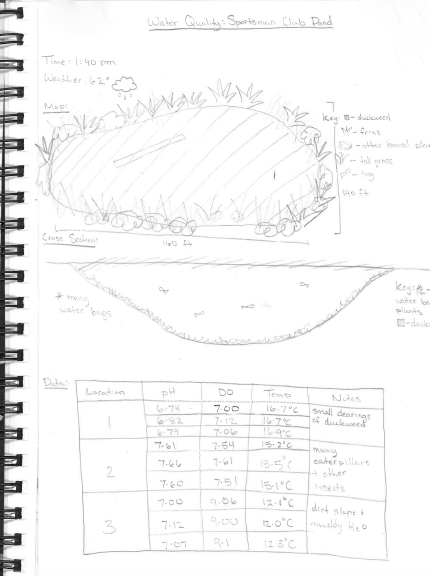 Water Quality: Sportsman Club Pond
Time: 1:40 pm
Weather: 62°
Map:
Key: - duckweed
- ferns
- other bound plan
- tall grass
- log
140 ft
160 ft
Cross Section:
* many
water bugs
Key:
water bo
plants
- duckw
Data:
Location pH DO Temp Notes
1
6.78 7.00 16.7°C small clearings
6.82 7.12 16.7°C of duckweed
6.79 7.06 16.9°C
2
7.61 7.54 15.2°C many
7.66 7.61 15.5°C caterpillars
7.60 7.51 15.1°C + other
insects
3
7.00 9.06 12.1°C dirt slope +
7.12 9.00 12.0°C muddy
7.07 9.1 12.3°C